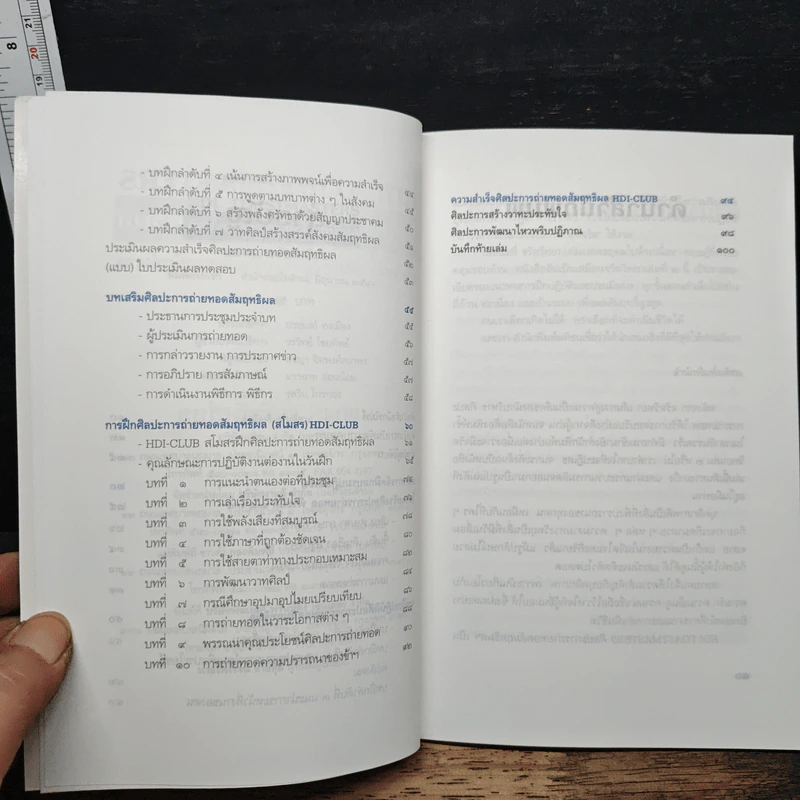 - บทฝึกลำดับที่ ๔ เน้นการสร้างภาพพจน์เพื่อความสำเร็จ ๔๔
- บทฝึกลำดับที่ ๕ การพูดตามบทบาทต่าง ๆ ในสังคม ๔๕
- บทฝึกลำดับที่ ๖ สร้างพลังศรัทธาด้วยสัญญาประชาคม ๕๐
- บทฝึกลำดับที่ ๗ วาทศิลป์สร้างสรรค์สังคมสัมฤทธิผล ๕๑
ประเมินผลความสำเร็จศิลปะการถ่ายทอดสัมฤทธิผล ๕๒
(แบบ) ใบประเมินผลทดสอบ ๕๓
บทเสริมศิลปะการถ่ายทอดสัมฤทธิผล ๕๔
- ประธานการประชุมประจำบท ๕๕
- ผู้ประเมินการถ่ายทอด ๕๖
- การกล่าวรายงาน การประกาศข่าว ๕๗
- การอภิปราย การสัมภาษณ์ ๕๗
- การดำเนินงานพิธีการ พิธีกร ๕๘
การฝึกศิลปะการถ่ายทอดสัมฤทธิผล (สโมสร) HDI-CLUB ๖๐
- HDI-CLUB สโมสรฝึกศิลปะการถ่ายทอดสัมฤทธิผล ๖๑
- คุณลักษณะการปฏิบัติงานต่องานในวันฝึก ๖๕
บทที่ ๑ การแนะนำตนเองต่อที่ประชุม ๗๔
บทที่ ๒ การเล่าเรื่องประทับใจ ๗๖
บทที่ ๓ การใช้พลังเสียงที่สมบูรณ์ ๗๘
บทที่ ๔ การใช้ภาษาที่ถูกต้องชัดเจน ๘๐
บทที่ ๕ การใช้สายตาท่าทางประกอบเหมาะสม ๘๒
บทที่ ๖ การพัฒนาวาทศิลป์ ๘๔
บทที่ ๗ กรณีศึกษาอุปมาอุปไมยเปรียบเทียบ ๘๖
บทที่ ๘ การถ่ายทอดในวาระโอกาสต่าง ๆ ๘๘
บทที่ ๙ พรรณนาคุณประโยชน์ศิลปะการถ่ายทอด ๙๐
บทที่ ๑๐ การถ่ายทอดความปรารถนาของข้าฯ ๙๒
ความสำเร็จศิลปะการถ่ายทอดสัมฤทธิผล HDI-CLUB ๙๔
ศิลปะการสร้างวาทะประทับใจ ๙๖
ศิลปะการพัฒนาไหวพริบปฏิภาณ ๙๘
บันทึกท้ายเล่ม ๑๐๐